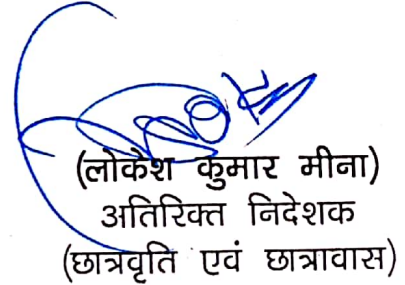 (लोकेश कुमार मीना)
अतिरिक्त निदेशक
(छात्रवृति एवं छात्रावास)